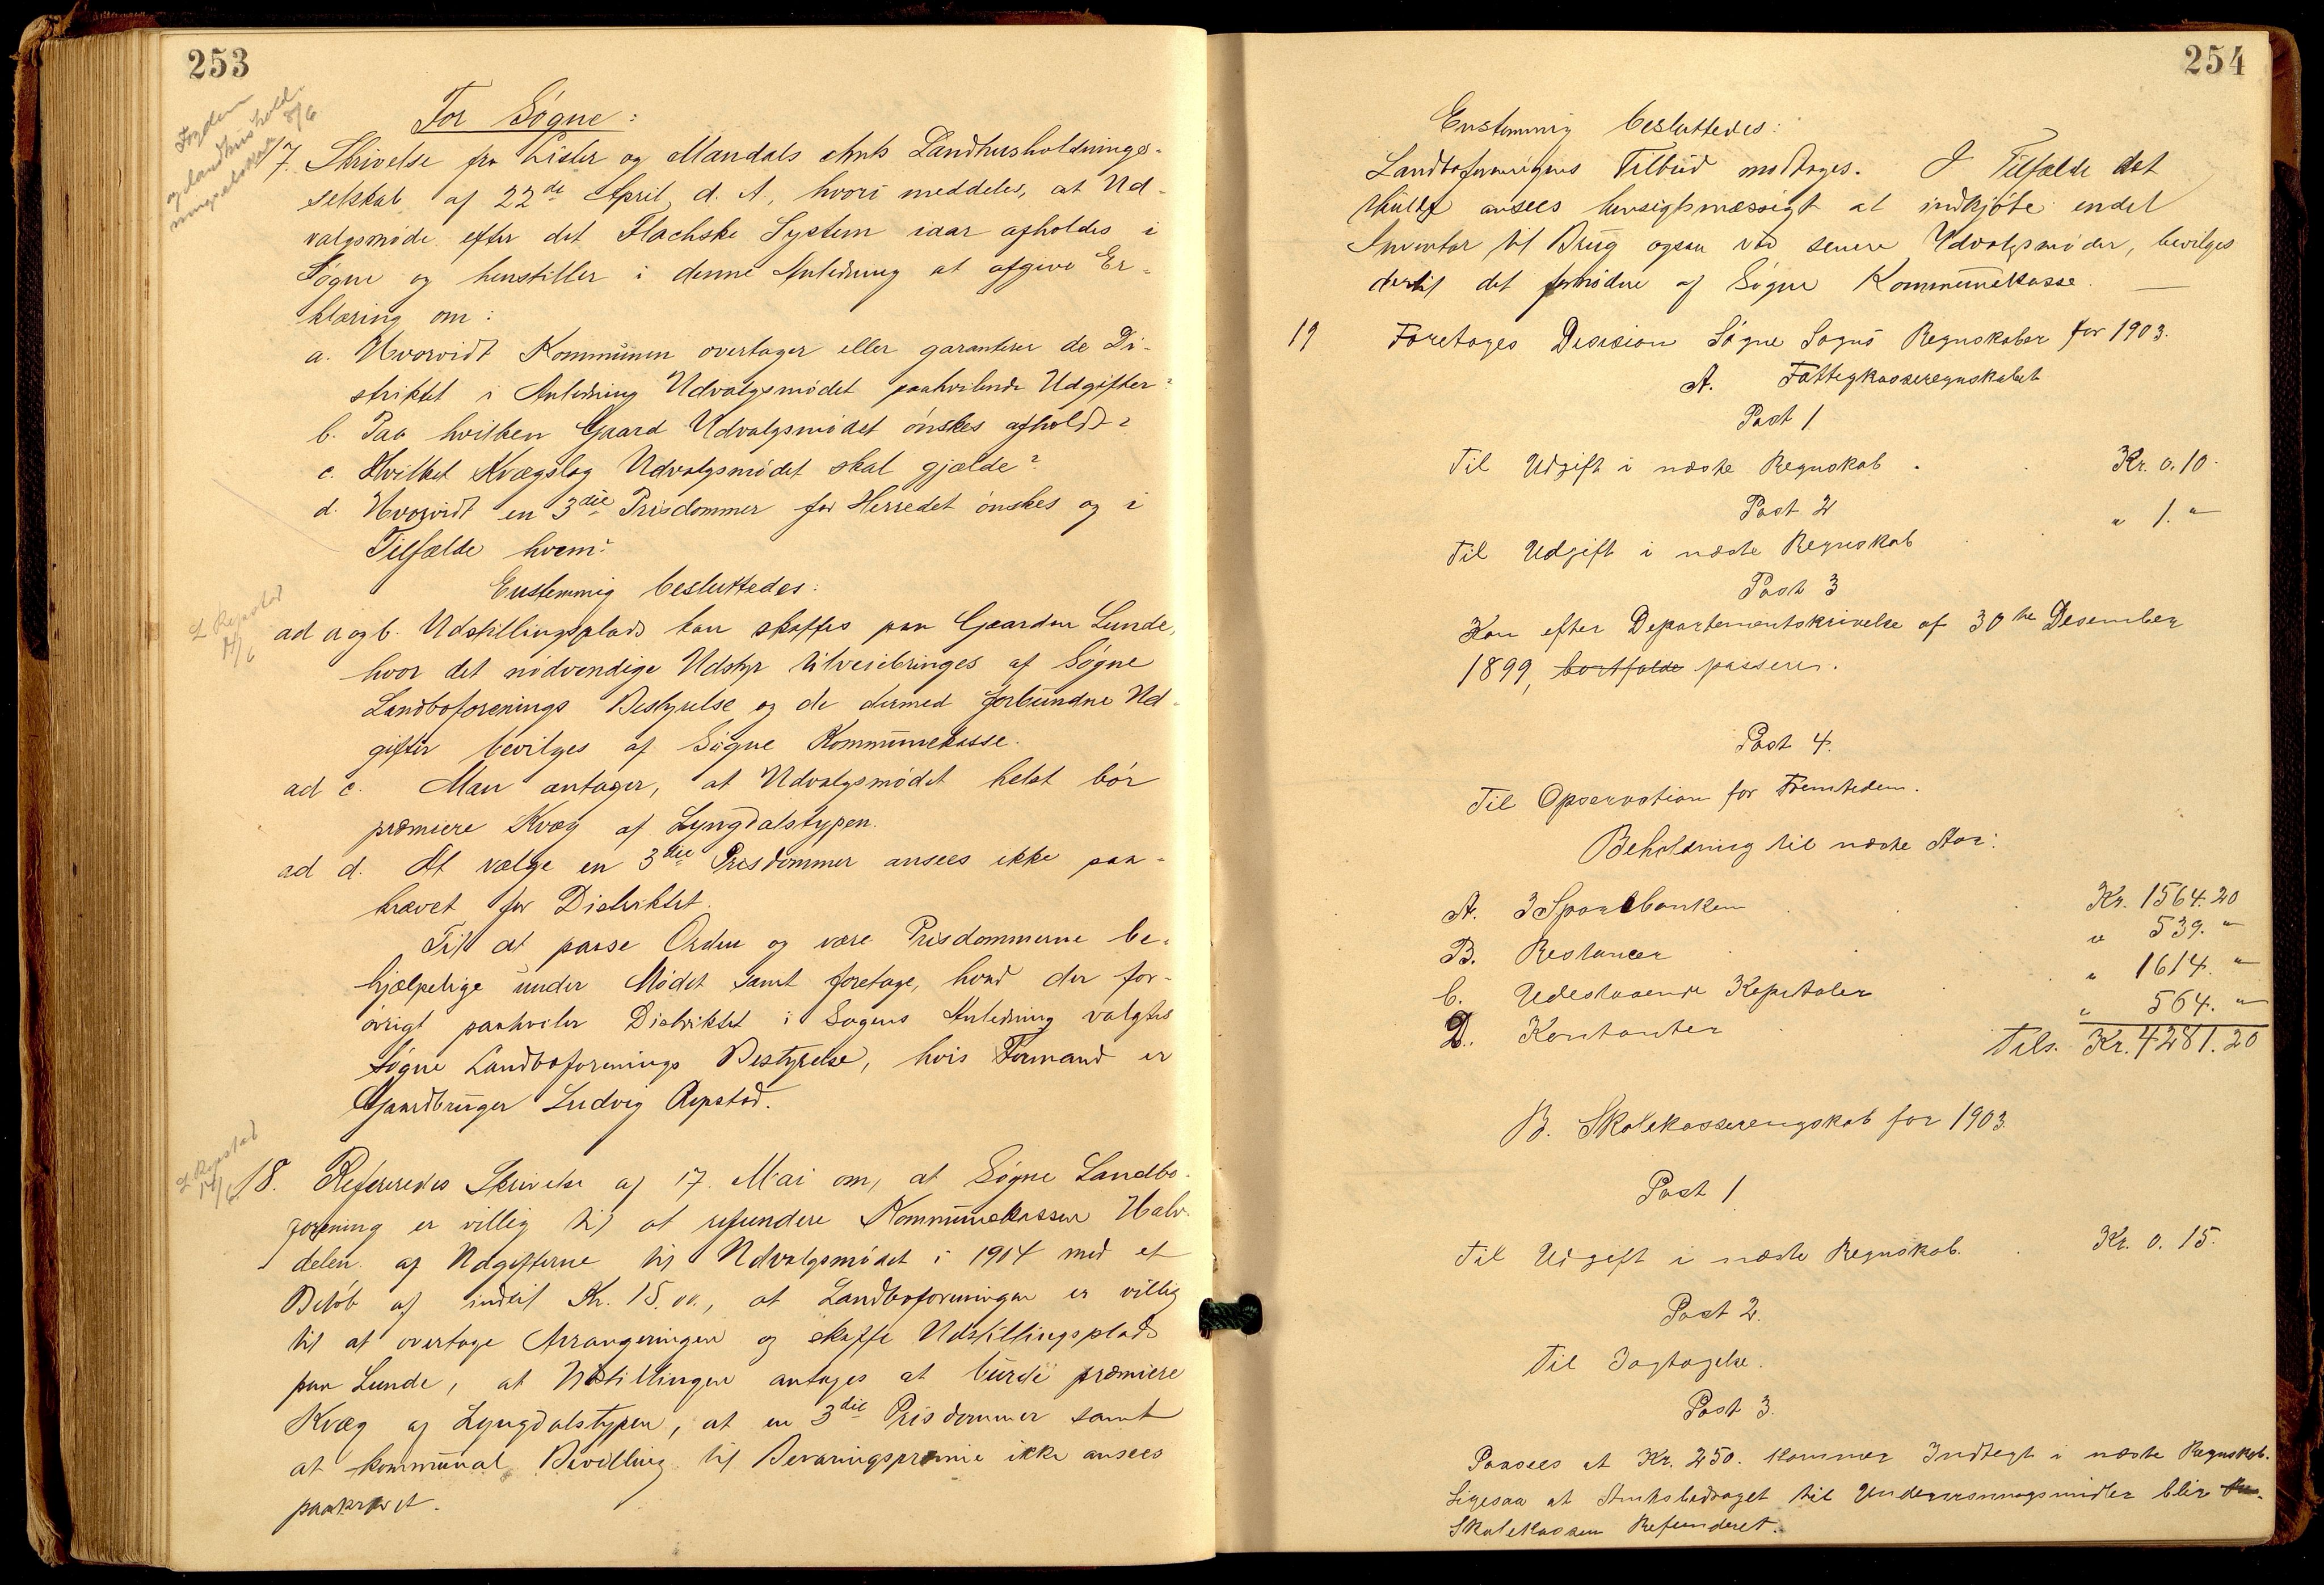 253
Fogden
og landhushold-
ningsselskab 8/6
For Søgne:
17. Skrivelse fra Lister og Mandals Amts Landhusholdnings-
selskab af 22de April d. A., hvori meddeles, at Ud-
valgsmøde efter det Flachske System iaar afholdes i
Søgne og henstiller i denne Anledning at afgive Er-
klæring om:
a. Hvorvidt Kommunen overtager eller garanterer de Di-
striktet i Anledning Udvalgsmødet paahvilende Udgifter?
b. Paa hvilken Gaard Udvalgsmødet ønskes afholdt?
c. Hvilket Kvægslag Udvalgsmødet skal gjælde?
d. Hvorvidt en 3die Prisdommer for Herredet ønskes og i
Tilfælde hvem?
Enstemmig besluttedes:
L Repstad
14/6
ad a og b. Udstillingsplads kan skaffes paa Gaarden Lunde,
hvor det nødvendige Udstyr tilveiebringes af Søgne
Landboforenings Bestyrelse og de dermed forbundne Ud-
gifter bevilges af Søgne Kommunekasse.
ad c. Man antager, at Udvalgsmødet helst bør
præmiere Kvæg af Lyngdalstypen.
ad d. At vælge en 3die Prisdommer ansees ikke paa-
krævet for Distriktet.
Til at paase Orden og være Prisdommerne be-
hjælpelige under Mødet samt foretage, hvad der for-
øvrigt paahviler Distriktet i Sagens Anledning valgtes
Søgne Landboforenings Bestyrelse, hvis Formand er
Gaardbruger Ludvig Repstad.
L Repstad
14/6
18. Refereredes Skrivelse af 17. Mai om, at Søgne Landbo-
forening er villig til at refundere Kommunekassen Halv-
delen af Udgifterne til Udvalgsmødet i 1914 med et
Beløb af indtil Kr. 15.00., at Landboforeningen er villig
til at overtage Arrangeringen og skaffe Udstillingsplads
paa Lunde, at Udstillingen antages at burde præmiere
Kvæg af Lyngdalstypen, at en 3die Prisdommer samt
at kommunal Bevilling til Bevaringspræmie ikke ansees
paakrævet.
254
Enstemmig besluttedes:
Landboforeningens Tilbud modtages. I Tilfælde det
skulde ansees hensigtsmæssigt at indkjøbe endel
Inventar til Brug ogsaa ved senere Udvalgsmøder, bevilges
dertil det fornødne af Søgne Kommunekasse.
19 Foretages Decision Søgne Sogns Regnskaber for 1903.
A. Fattigkasseregnskabet
Post 1
Til Udgift i næste Regnskab . Kr. 0.10.
Post 2
Til Udgift i næste Regnskab " 1. "
Post 3
Kan efter Departementskrivelse af 30te Desember
1899, bortfalde passeres.
Post 4.
Til Opservation for Fremtiden.
Beholdning til næste Aar:
A. I Sparebanken Kr. 1564.20
B. Restancer " 539. "
C. Udestaaende Kapitaler " 1614. "
D. Kontanter " 564. "
Tils. Kr. 4281.20
B. Skolekasseregnskab for 1903.
Post 1
Til Udgift i næste Regnskab. Kr. 0. 15.
Post 2.
Til Iagtagelse.
Post 3.
Paasees at Kr. 250. kommer Indtægt i næste Regnskab.
Ligesaa at Amtsbidraget til Undervisningsmidler blir
Skolekassen Refunderet.